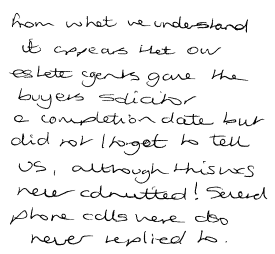 from what we understand
it appears that our
estate agents gave the
buyers solicitor
a completion date but
did not / forgot to tell
us, although this was
never admitted! Several
phone calls were also
never replied to.